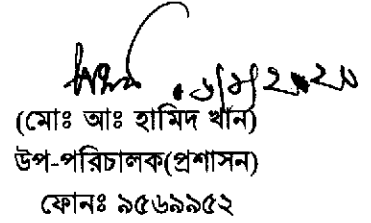 (মোঃ আঃ হামিদ খাঁন)
উপ-পরিচালক(প্রশাসন)
ফোনঃ ৯৫৬৯৯৫২